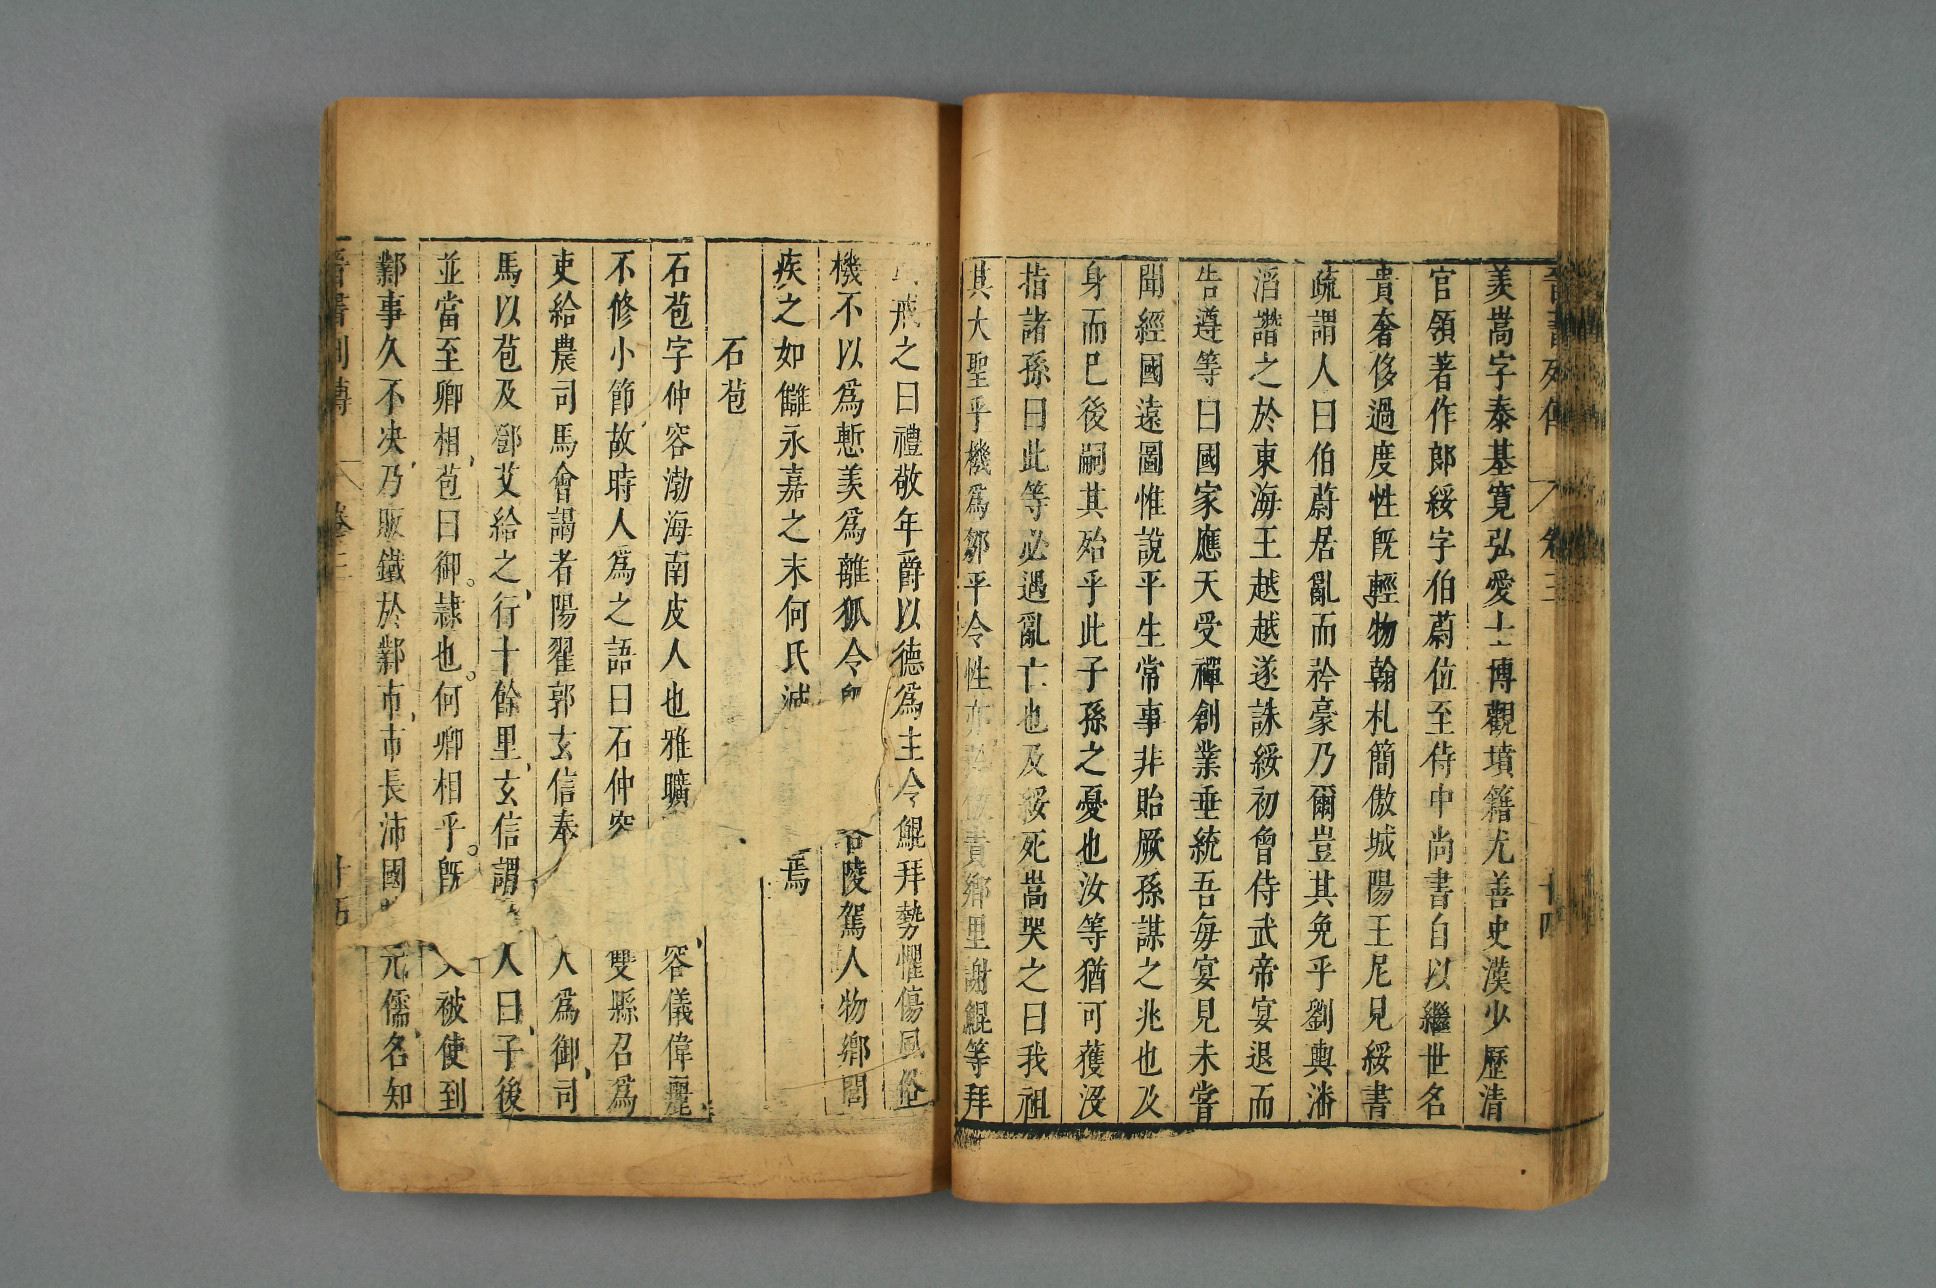 晉書列傳 卷三 十四
羨嵩字泰基寬弘愛士博觀墳籍尤善史漢少歷清
官領著作郎綏字伯蔚位至侍中尚書自以繼世名
貴奢侈過度性既輕物翰札簡傲城陽王尼見綏書
疏謂人曰伯蔚居亂而矜豪乃爾豈其免乎劉輿潘
滔譖之於東海王越越遂誅綏初曾侍武帝宴退而
告遵等曰國家應天受禪創業垂統吾每宴見未嘗
聞經國遠圖惟說平生常事非貽厥孫謀之兆也及
身而已後嗣其殆乎此子孫之憂也汝等猶可獲沒
指諸孫曰此等必遇亂亡也及綏死嵩哭之曰我祖
其大聖乎機爲鄒平令性亦 責鄉里謝鯤等拜
戒之曰禮敬年爵以德爲主令鯤拜勢懼傷風俗
機不以爲慙羨爲離狐令 陵駕人物鄉閭
疾之如讎永嘉之末何氏滅 焉
石苞
石苞字仲容渤海南皮人也雅曠 容儀偉麗
不修小節故時人爲之語曰石仲容 雙縣召爲
吏給農司馬會謁者陽翟郭玄信奉 人爲御司
馬以苞及鄧艾給之行十餘里玄信謂 人曰子後
並當至卿相苞曰御隷也何卿相乎既 被使到
鄴事久不决乃販鐵於鄴市市長沛國 元儒名知
晉書列傳 卷三 十五